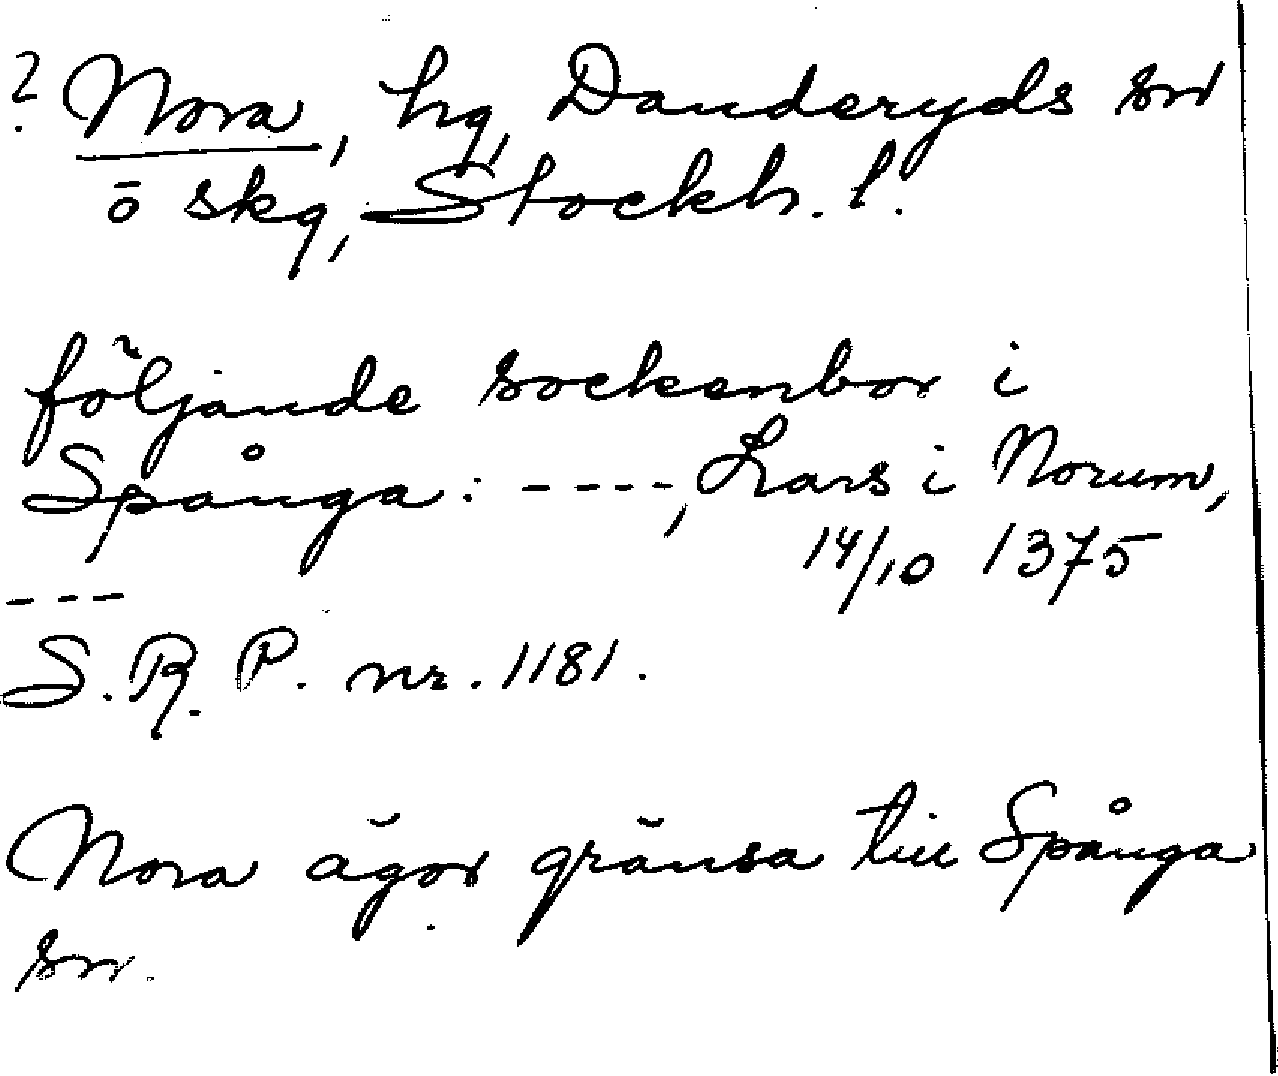 ? Nora, hg, Danderyds sn
ö skg, Stockh. l.
följande sockenbor i
Spånga: ----, Lars i Norum,
14/10 1375
---
S.R.P. nr. 1181.
Nora ägor gränsa till Spånga
sn.